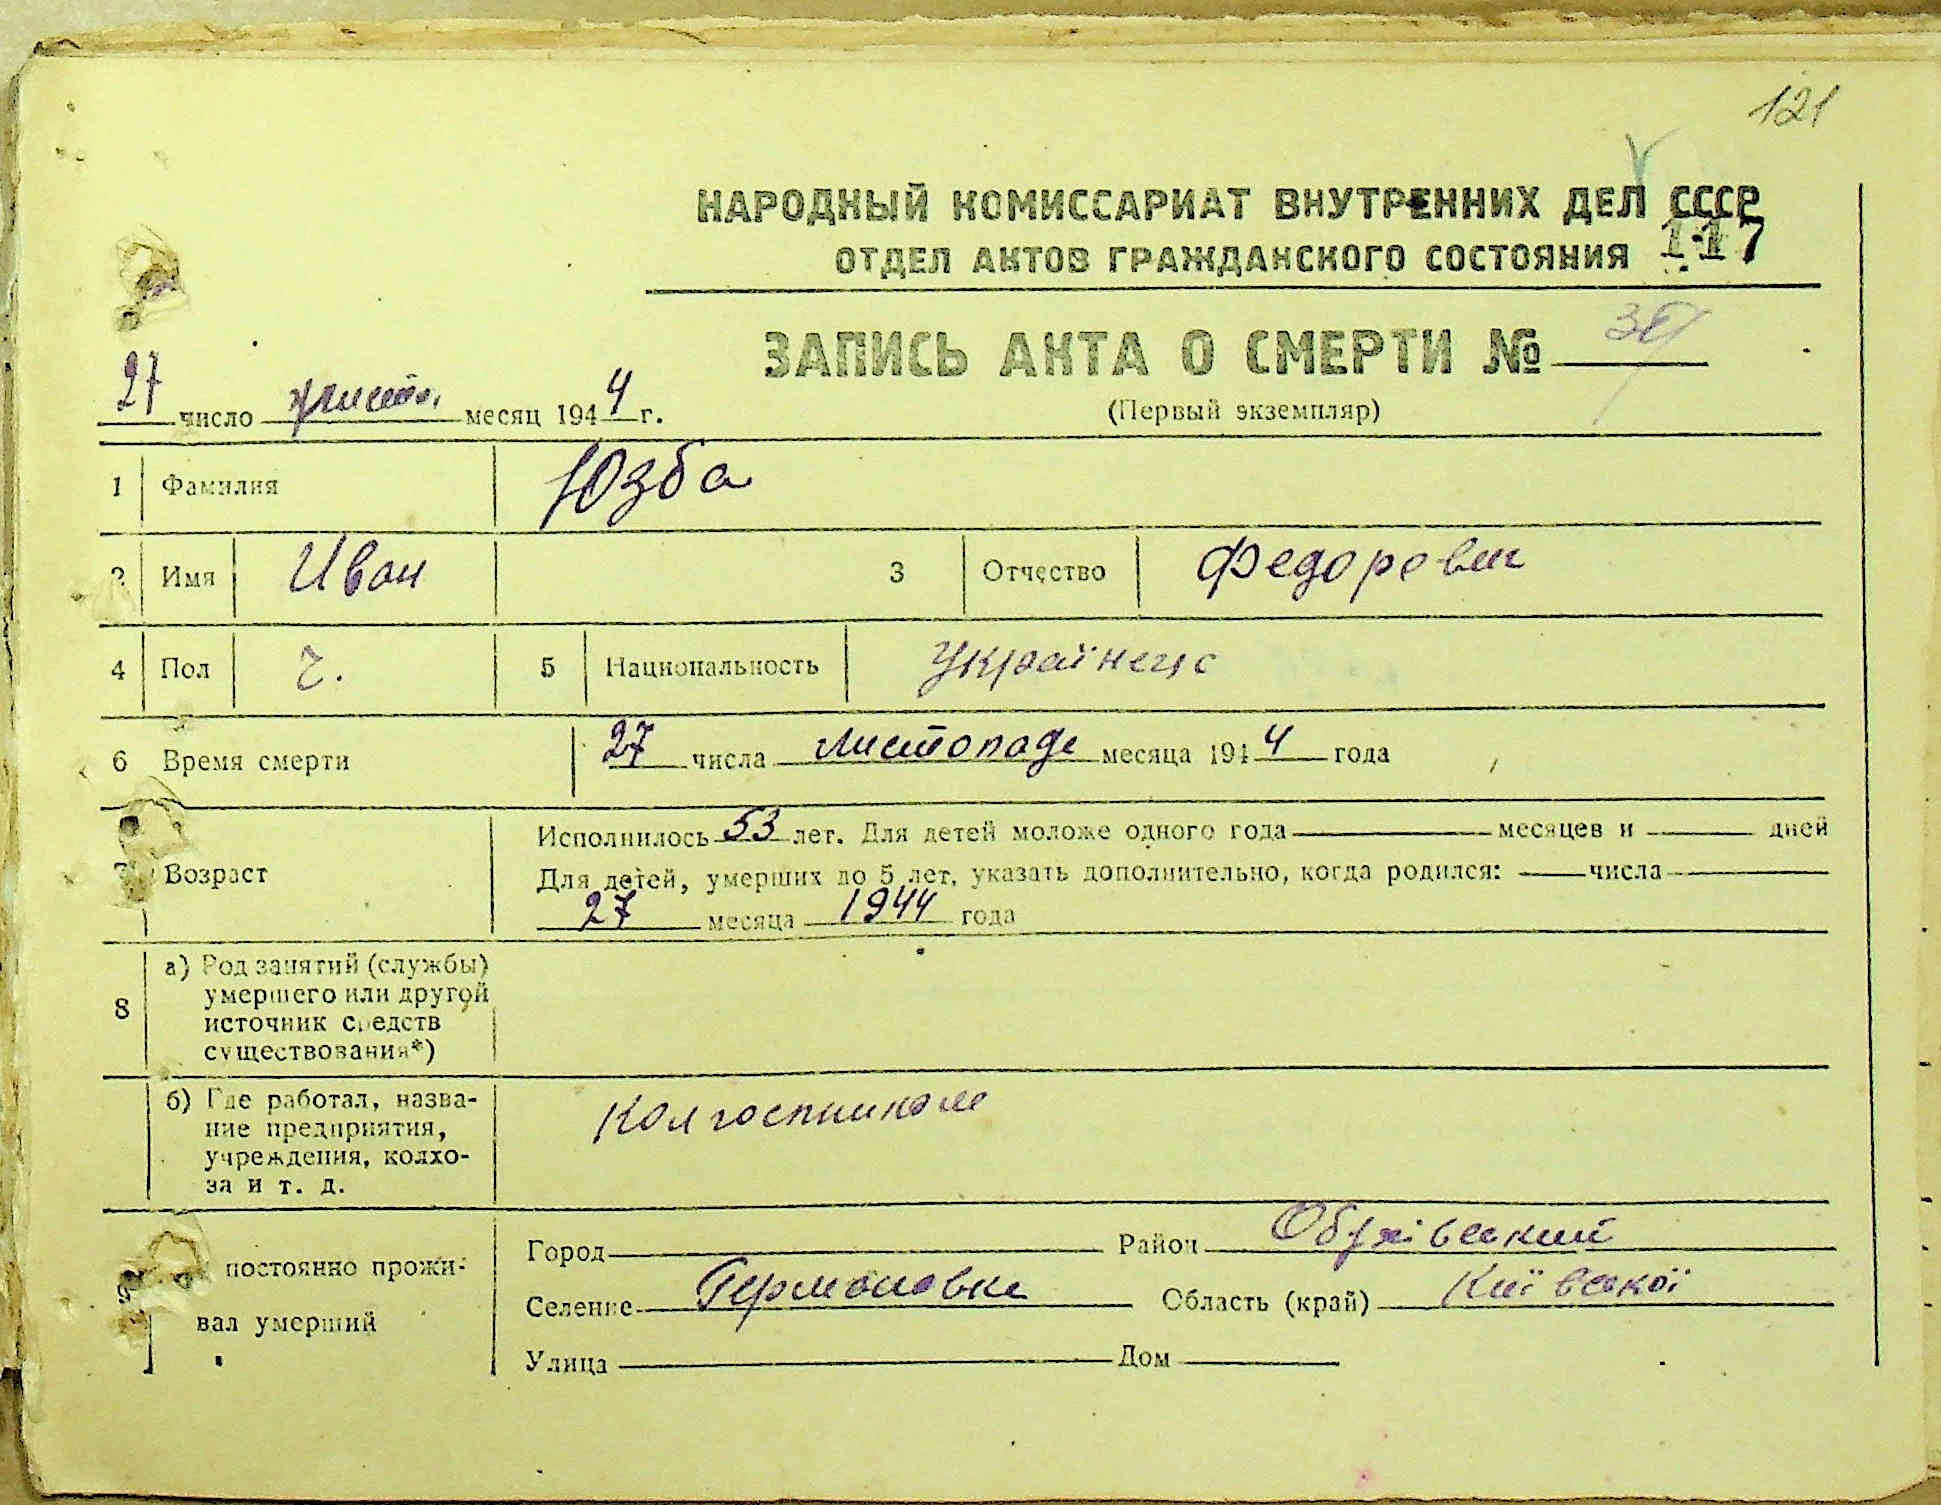 121
НАРОДНЫЙ КОМИССАРИАТ ВНУТРЕННИХ ДЕЛ СССР
ОТДЕЛ АКТОВ ГРАЖДАНСКОГО СОСТОЯНИЯ 117
ЗАПИСЬ АКТА О СМЕРТИ №
27 число листоп. месяц 1944 г.
(Первый экземпляр)
1 Фамилия Юзба
2 Имя Иван 3 Отчество Федорович
4 Пол ч. 5 Национальность Українець
6 Время смерти 27 числа листопада месяца 1944 года
Исполнилось 53 лет. Для детей моложе одного года месяцев и дней
7 Возраст Для детей, умерших до 5 лет, указать дополнительно, когда родился: числа
27 месяца 1944 года
а) Род занятий (службы)
8 умершего или другой
источник средств
существования*)
б) Где работал, назва-
ние предприятия,
учреждения, колхо-
за и т. д.
Колгоспником
Город Район Обухівський
постоянно прожи-
Селение Германовка Область (край) Київської
вал умерший
Улица Дом